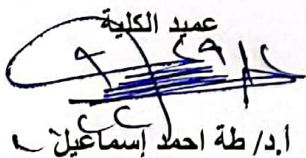 عميد الكلية
أ.د/ طة احمد إسماعيل